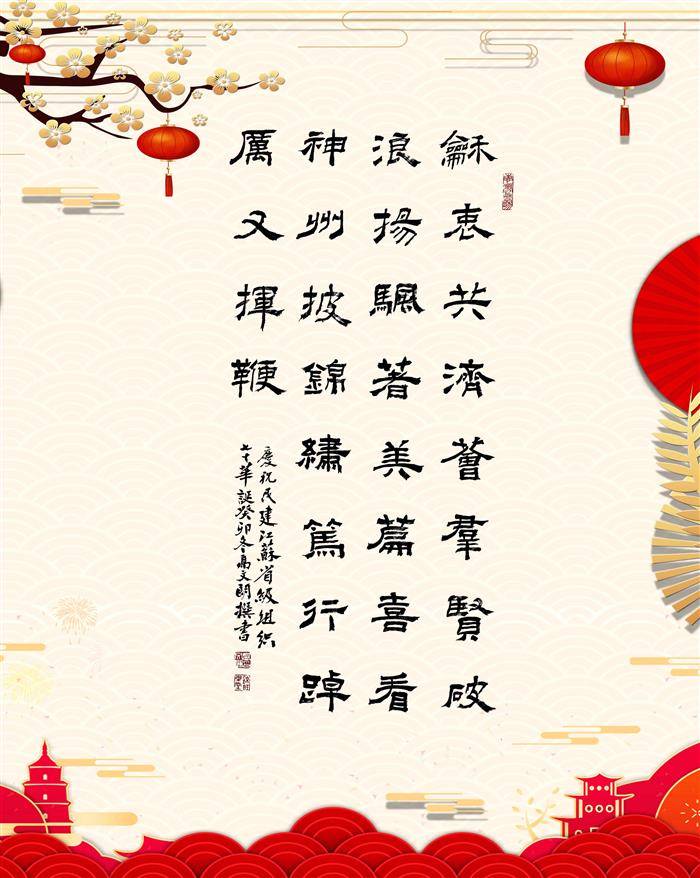 龢衷共濟薈羣賢破
浪揚颿著美篇喜看
神州披錦繡篤行踔
厲又揮鞭
慶祝民建江蘇省級組织
七十華誕癸卯冬高文朗撰書